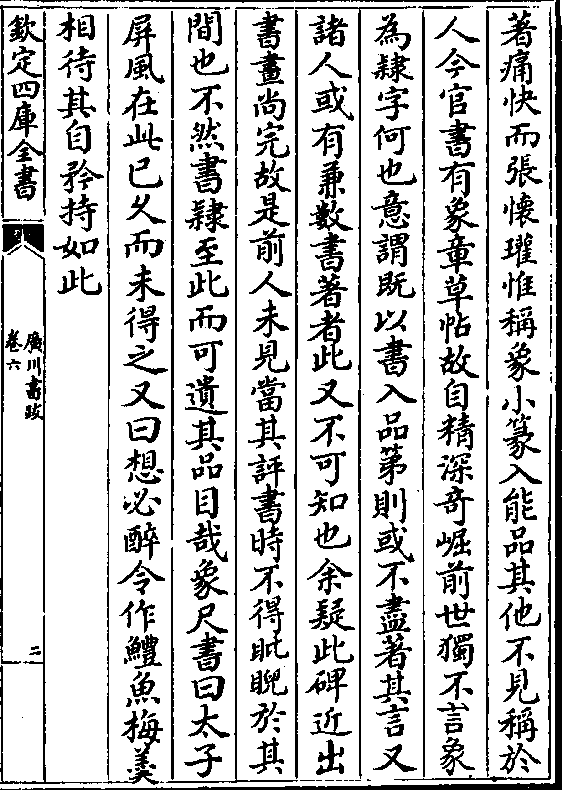 著痛快而張懷瓘惟稱象小篆入能品其他不見稱於
人今官書有象章草帖故自精深奇崛前世獨不言象
為隸字何也意謂既以書入品第則或不盡著其言又
諸人或有兼數書著者此又不可知也余疑此碑近出
書畫尚完故是前人未見當其評書時不得眡睨於其
間也不然書隸至此而可遺其品目哉象尺書曰太子
屏風在此已久而未得之又曰想必醉令作鱧魚梅羮
相待其自矜持如此
欽定四庫全書
廣川書跋
卷六
二